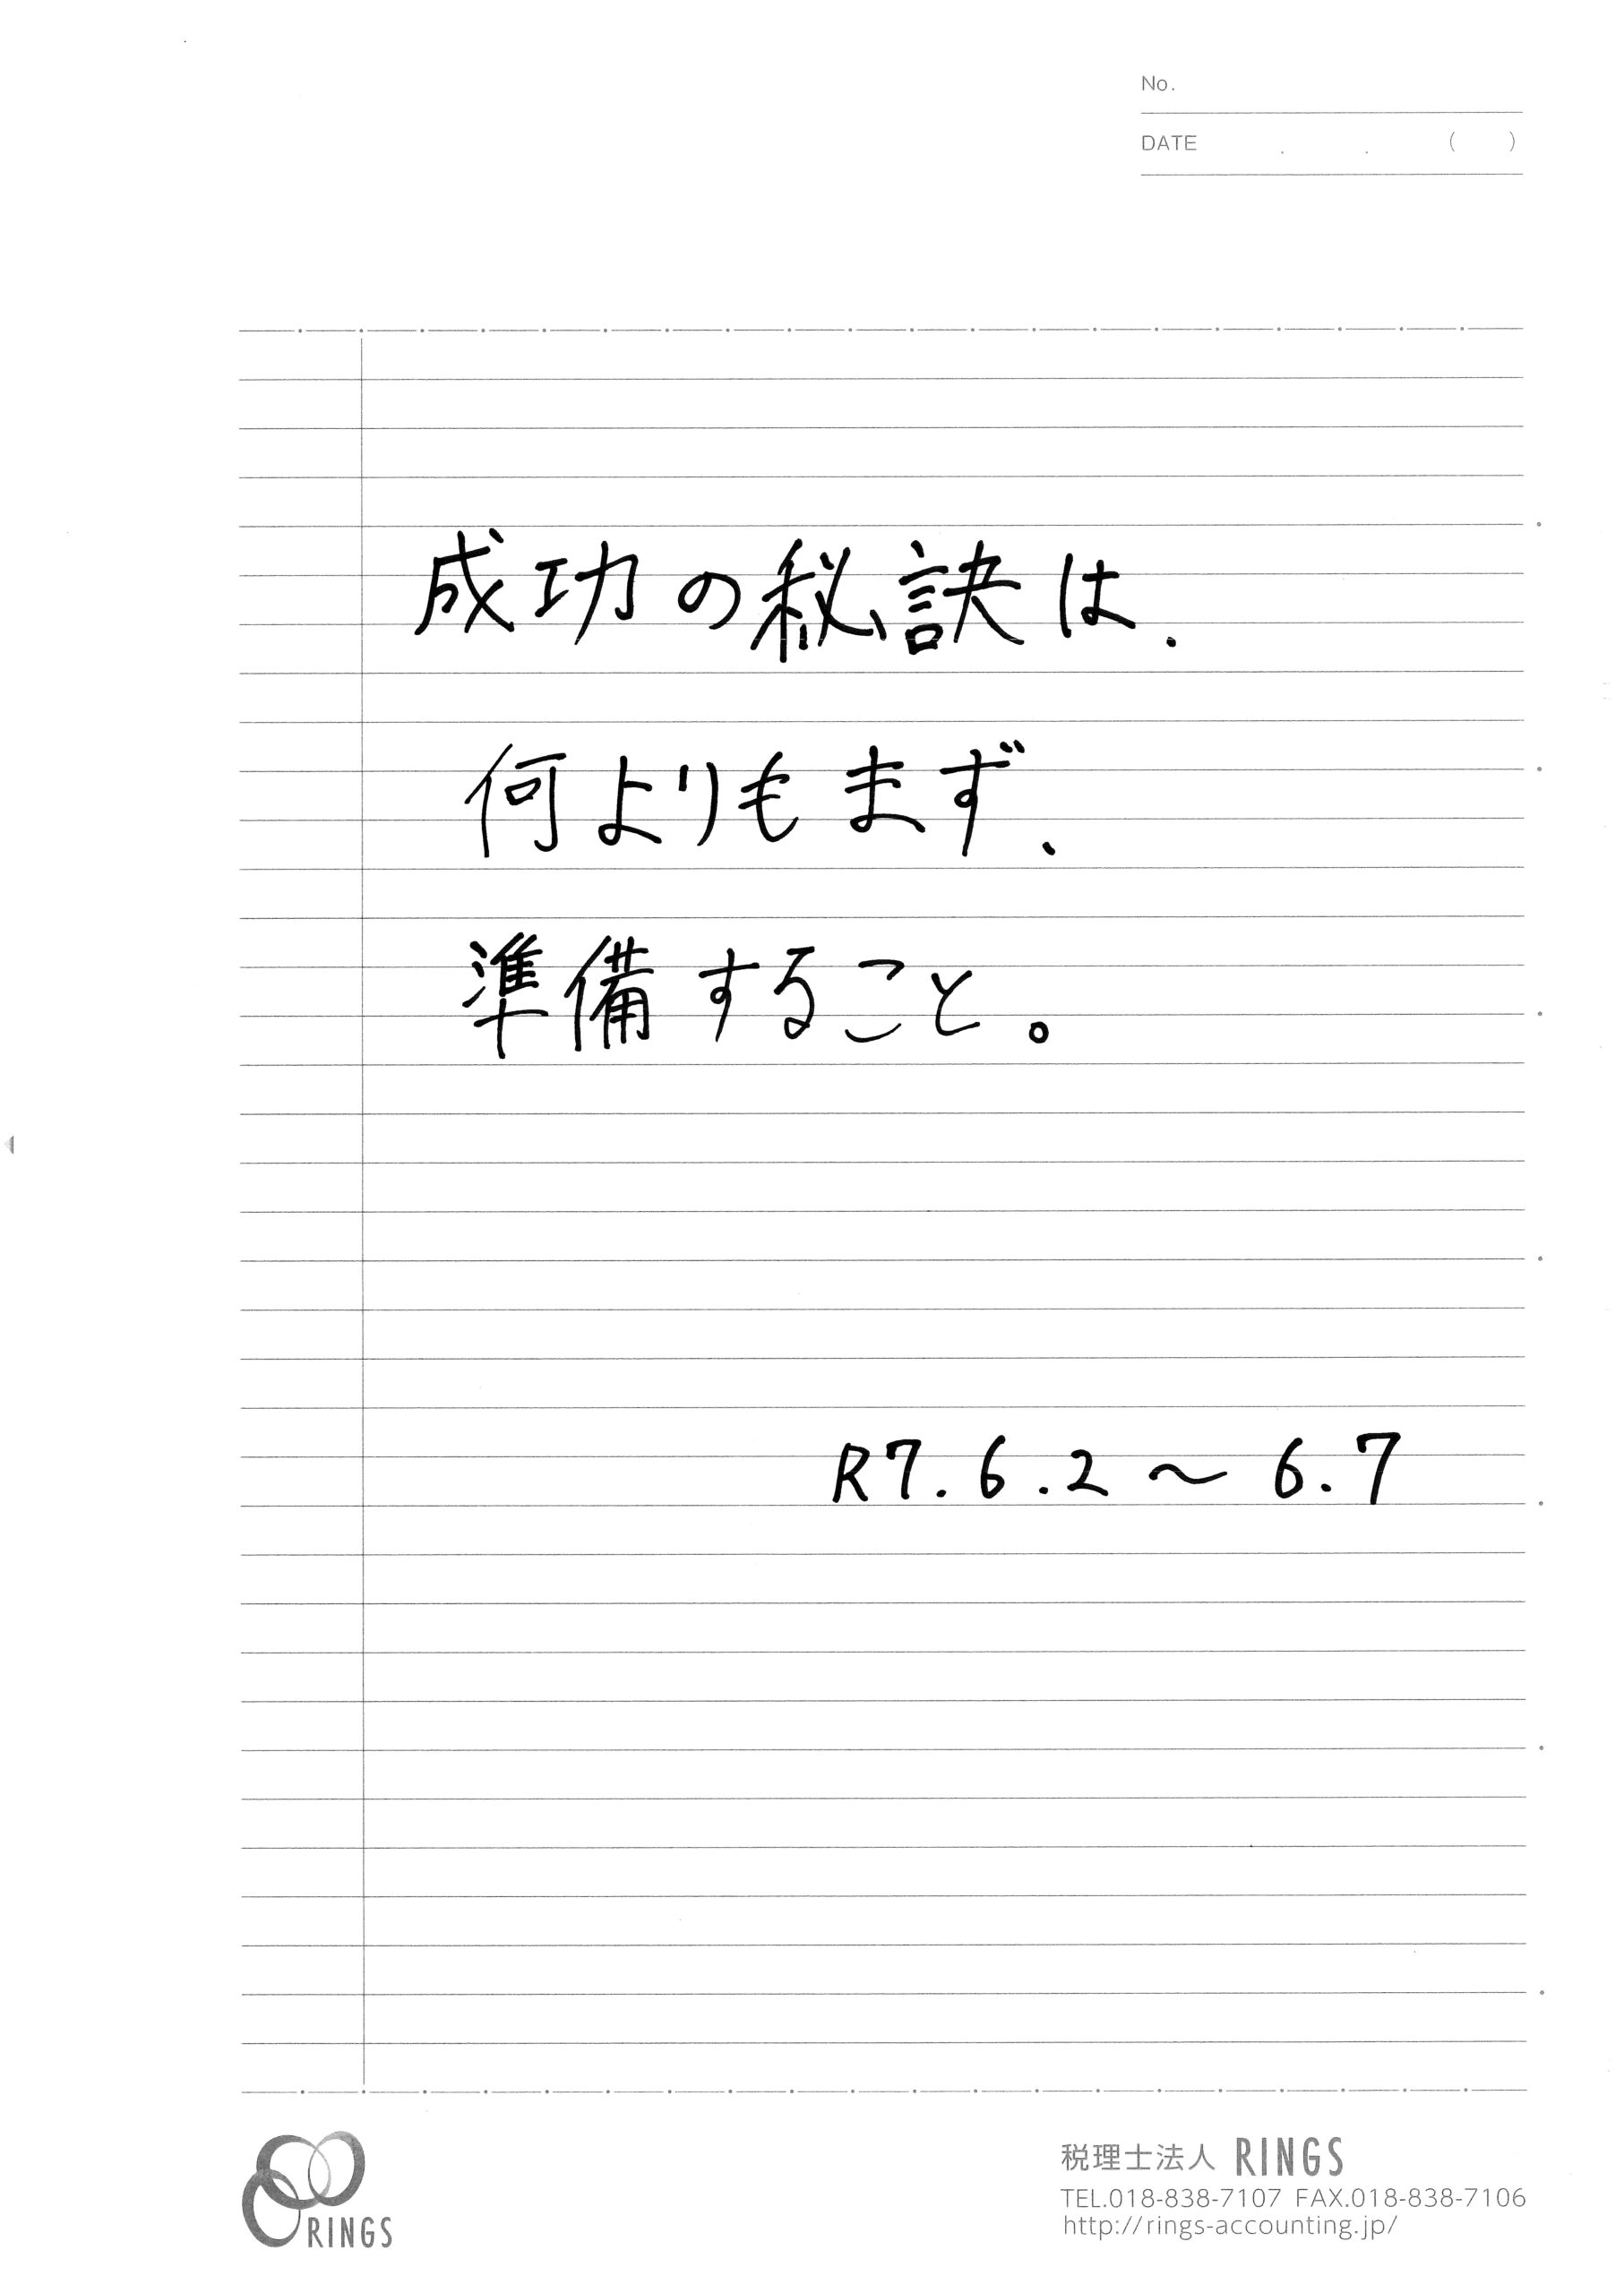 No.
DATE . . ( )
成功の秘訣は、
何よりもまず、
準備すること。
R7.6.2～6.7
RINGS
税理士法人 RINGS
TEL.018-838-7107 FAX.018-838-7106
http://rings-accounting.jp/